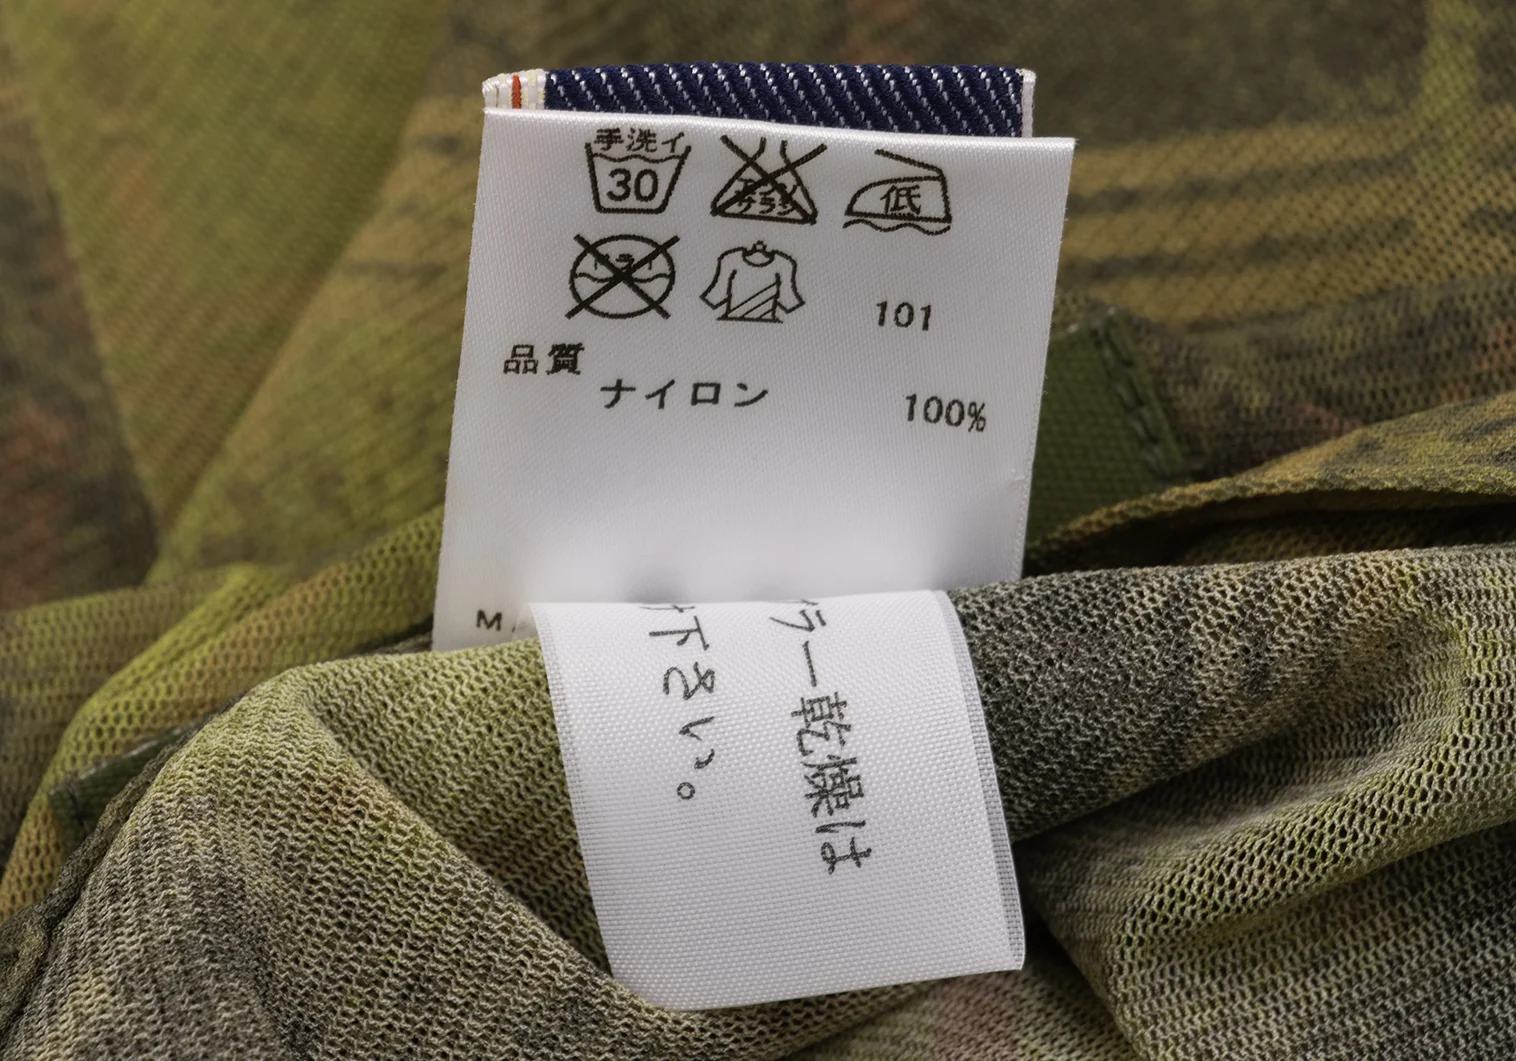 手洗イ
30
エンソ
サラシ
低
ドライ
101
品質
ナイロン 100%
M
ラー乾燥は
下さい。